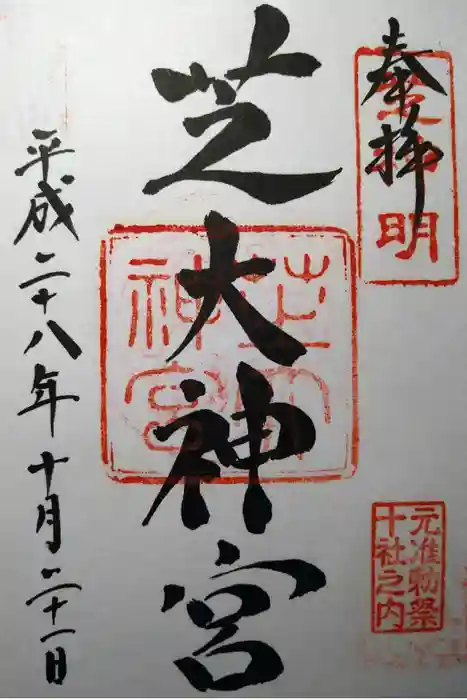 奉拝
芝大神宮
平成二十八年十月二十一日
芝大神宮
元准勅祭
十社之内